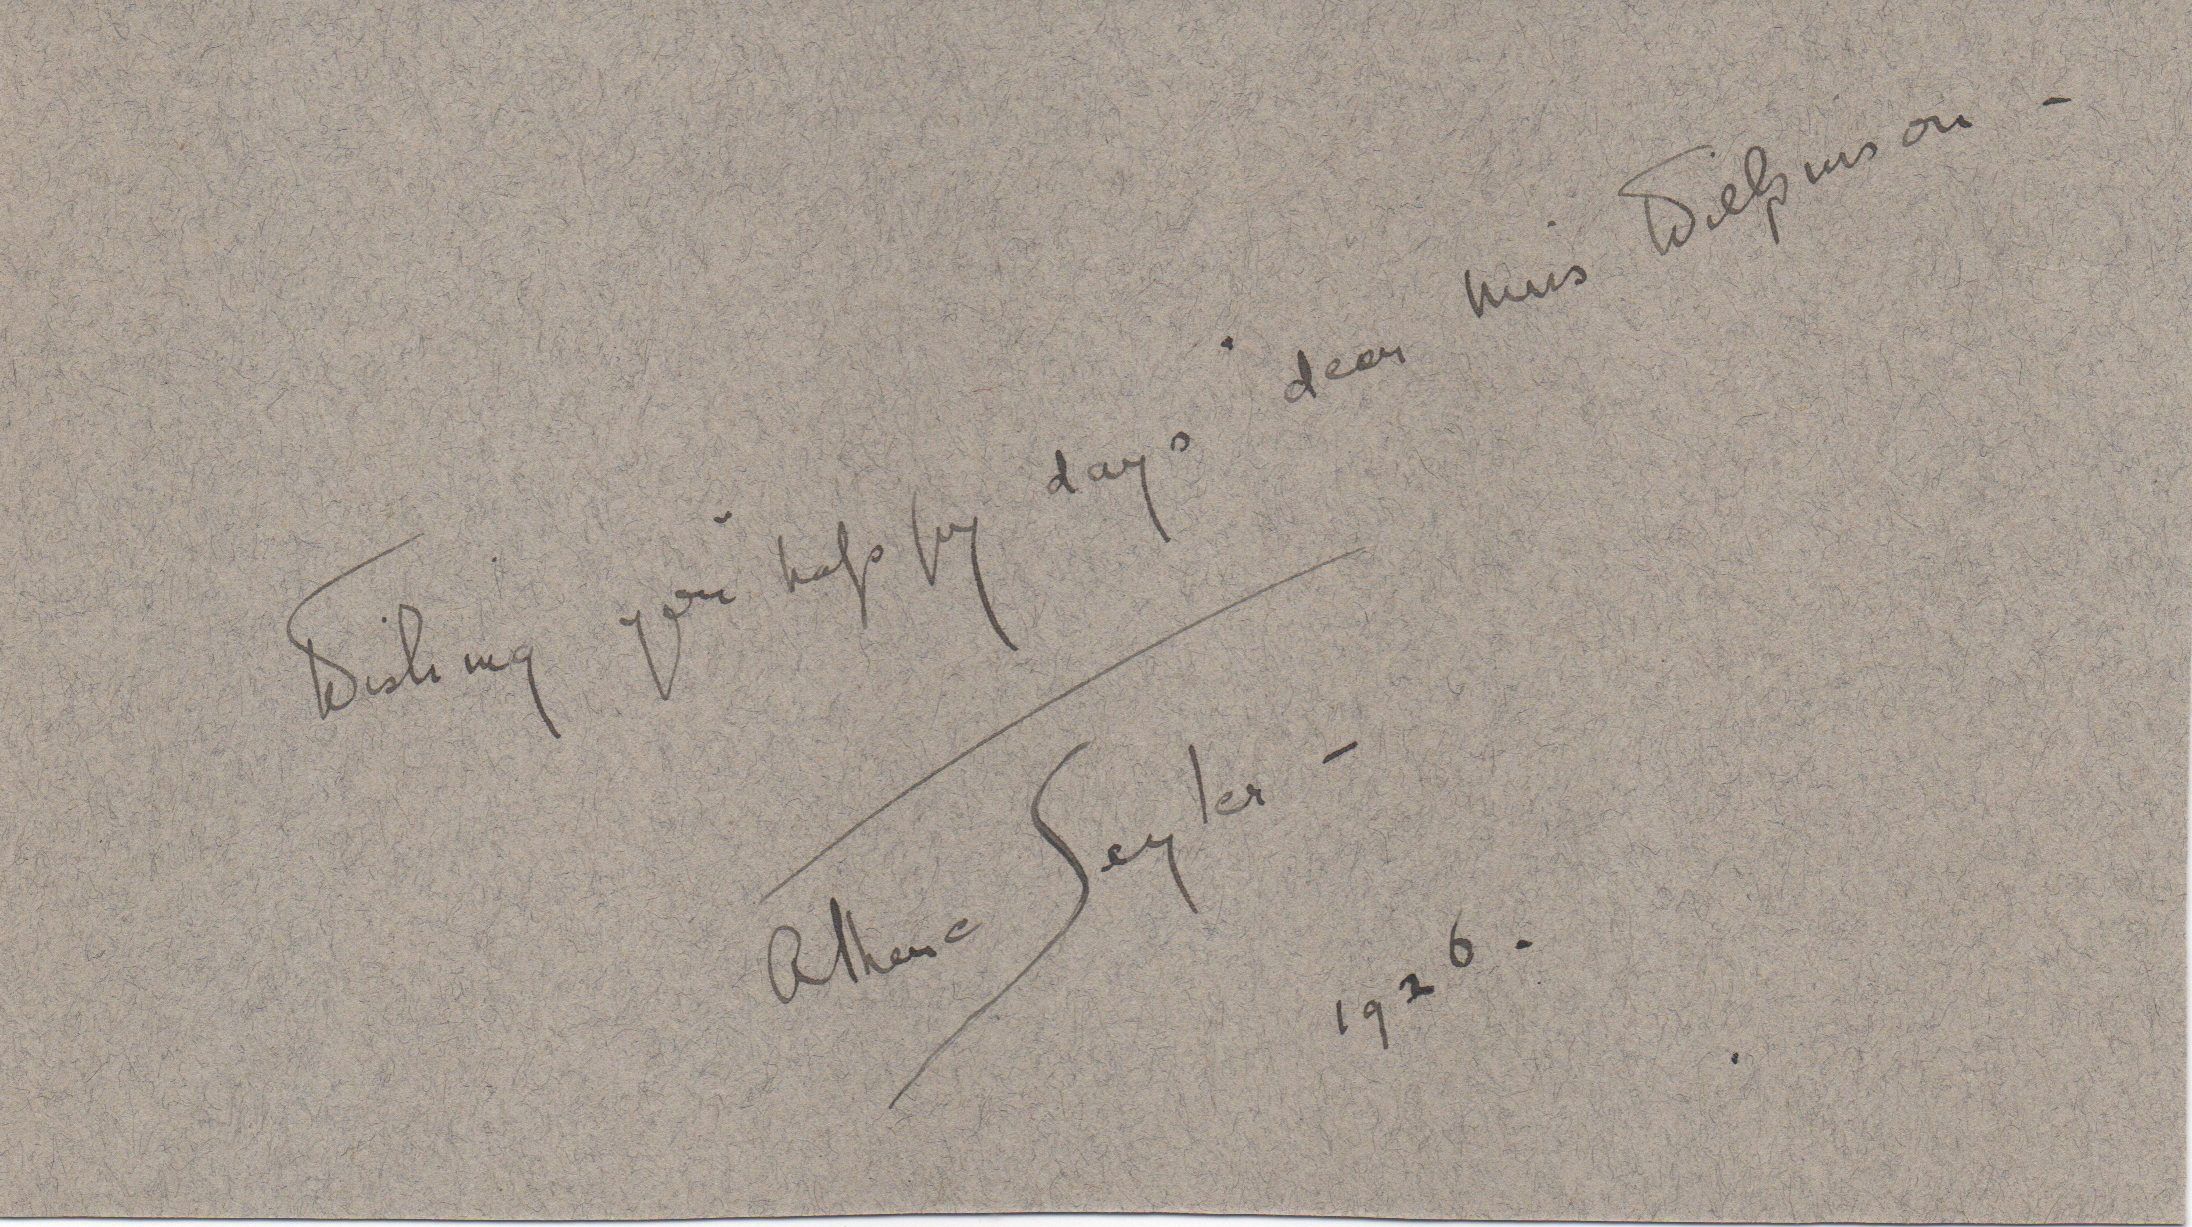 Wishing you "happy days" dear Miss Wilkinson –
Athene Seyler –
1926.